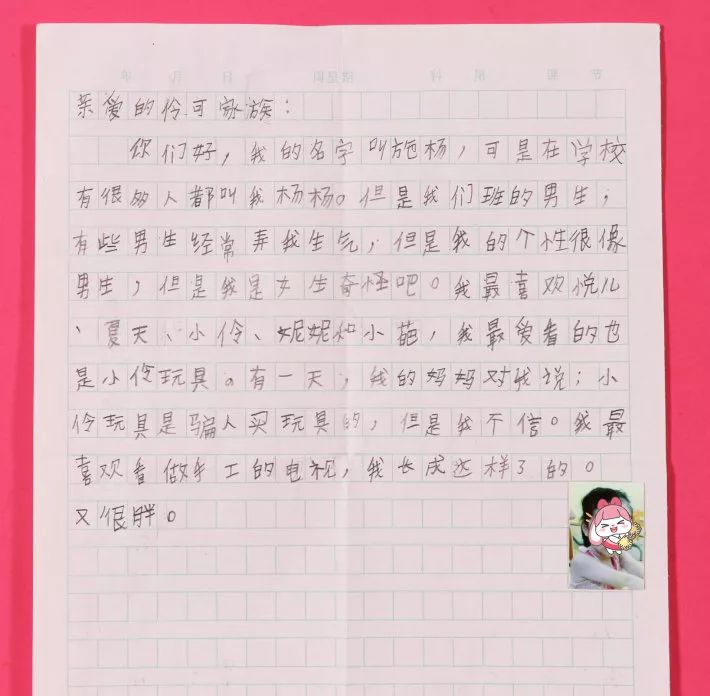 年 月 日 周星期 科 第 课 节
亲爱的伶可家族：
你们好，我的名字叫施杨，可是在学校
有很多人都叫我杨杨。但是我们班的男生，
有些男生经常弄我生气，但是我的个性很像
男生，但是我是女生奇怪吧。我最喜欢悦儿
、夏天、小伶、妮妮和小葩，我最爱看的也
是小伶玩具。有一天，我的妈妈对我说；小
伶玩具是骗人买玩具的，但是我不信。我最
喜欢看做手工的电视，我长成这样了的。
又很胖。